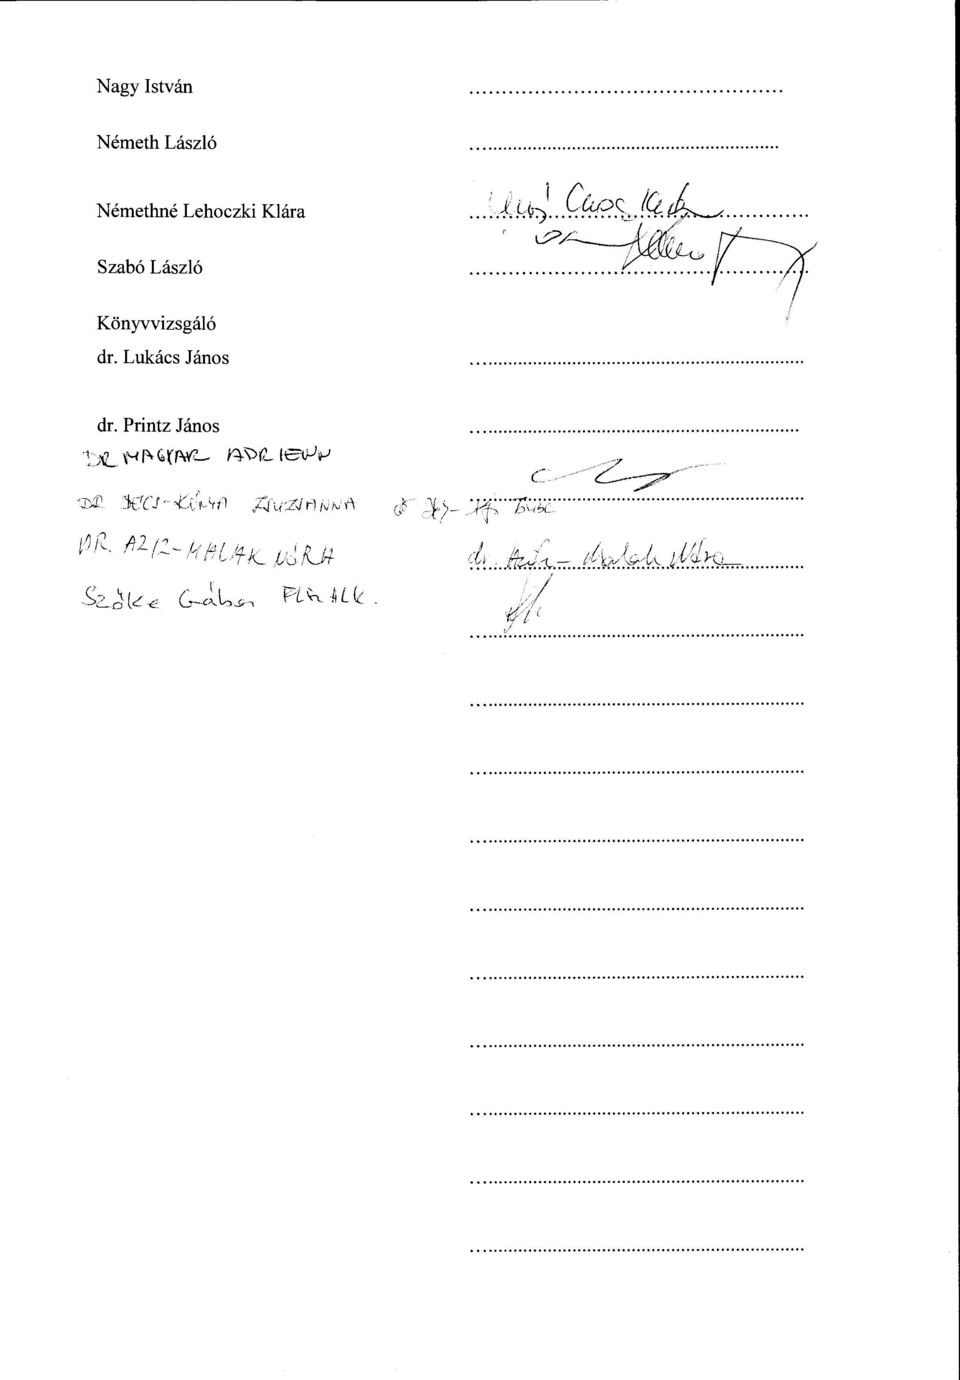 Nagy István
Németh László
Némethné Lehoczki Klára
Szabó László
Könyvvizsgáló
dr. Lukács János
dr. Printz János
DR MAGYAR ADRIENN
DR. ZSUZSANNA
DR. MALAK NÓRA
dr. Malak Nóra
Szőke Gábor